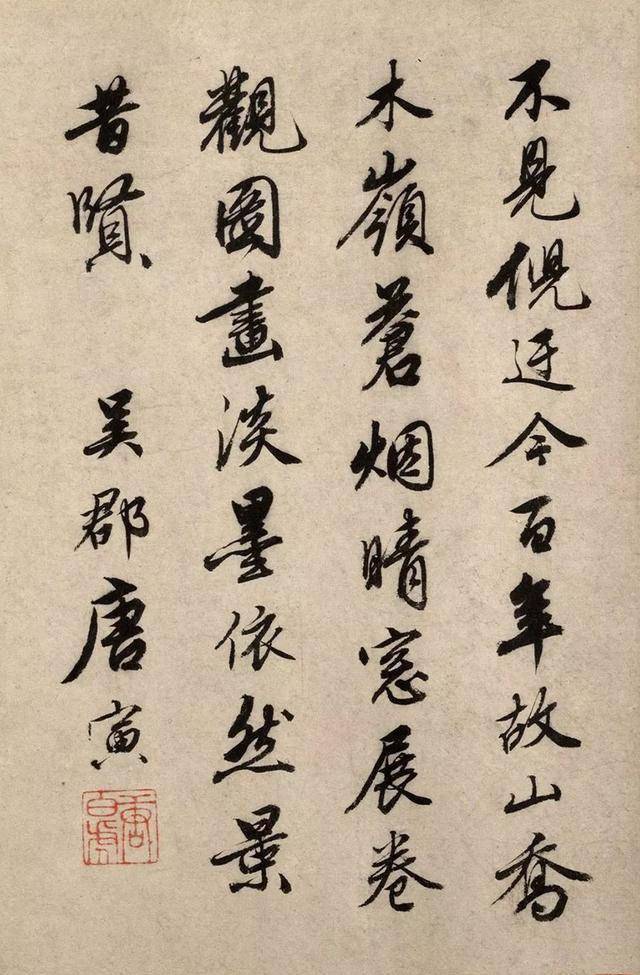 不見倪迂今百年故山喬
木嶺蒼烟晴窓展卷
觀圖畫淡墨依然景
昔賢 吳郡唐寅
唐白虎